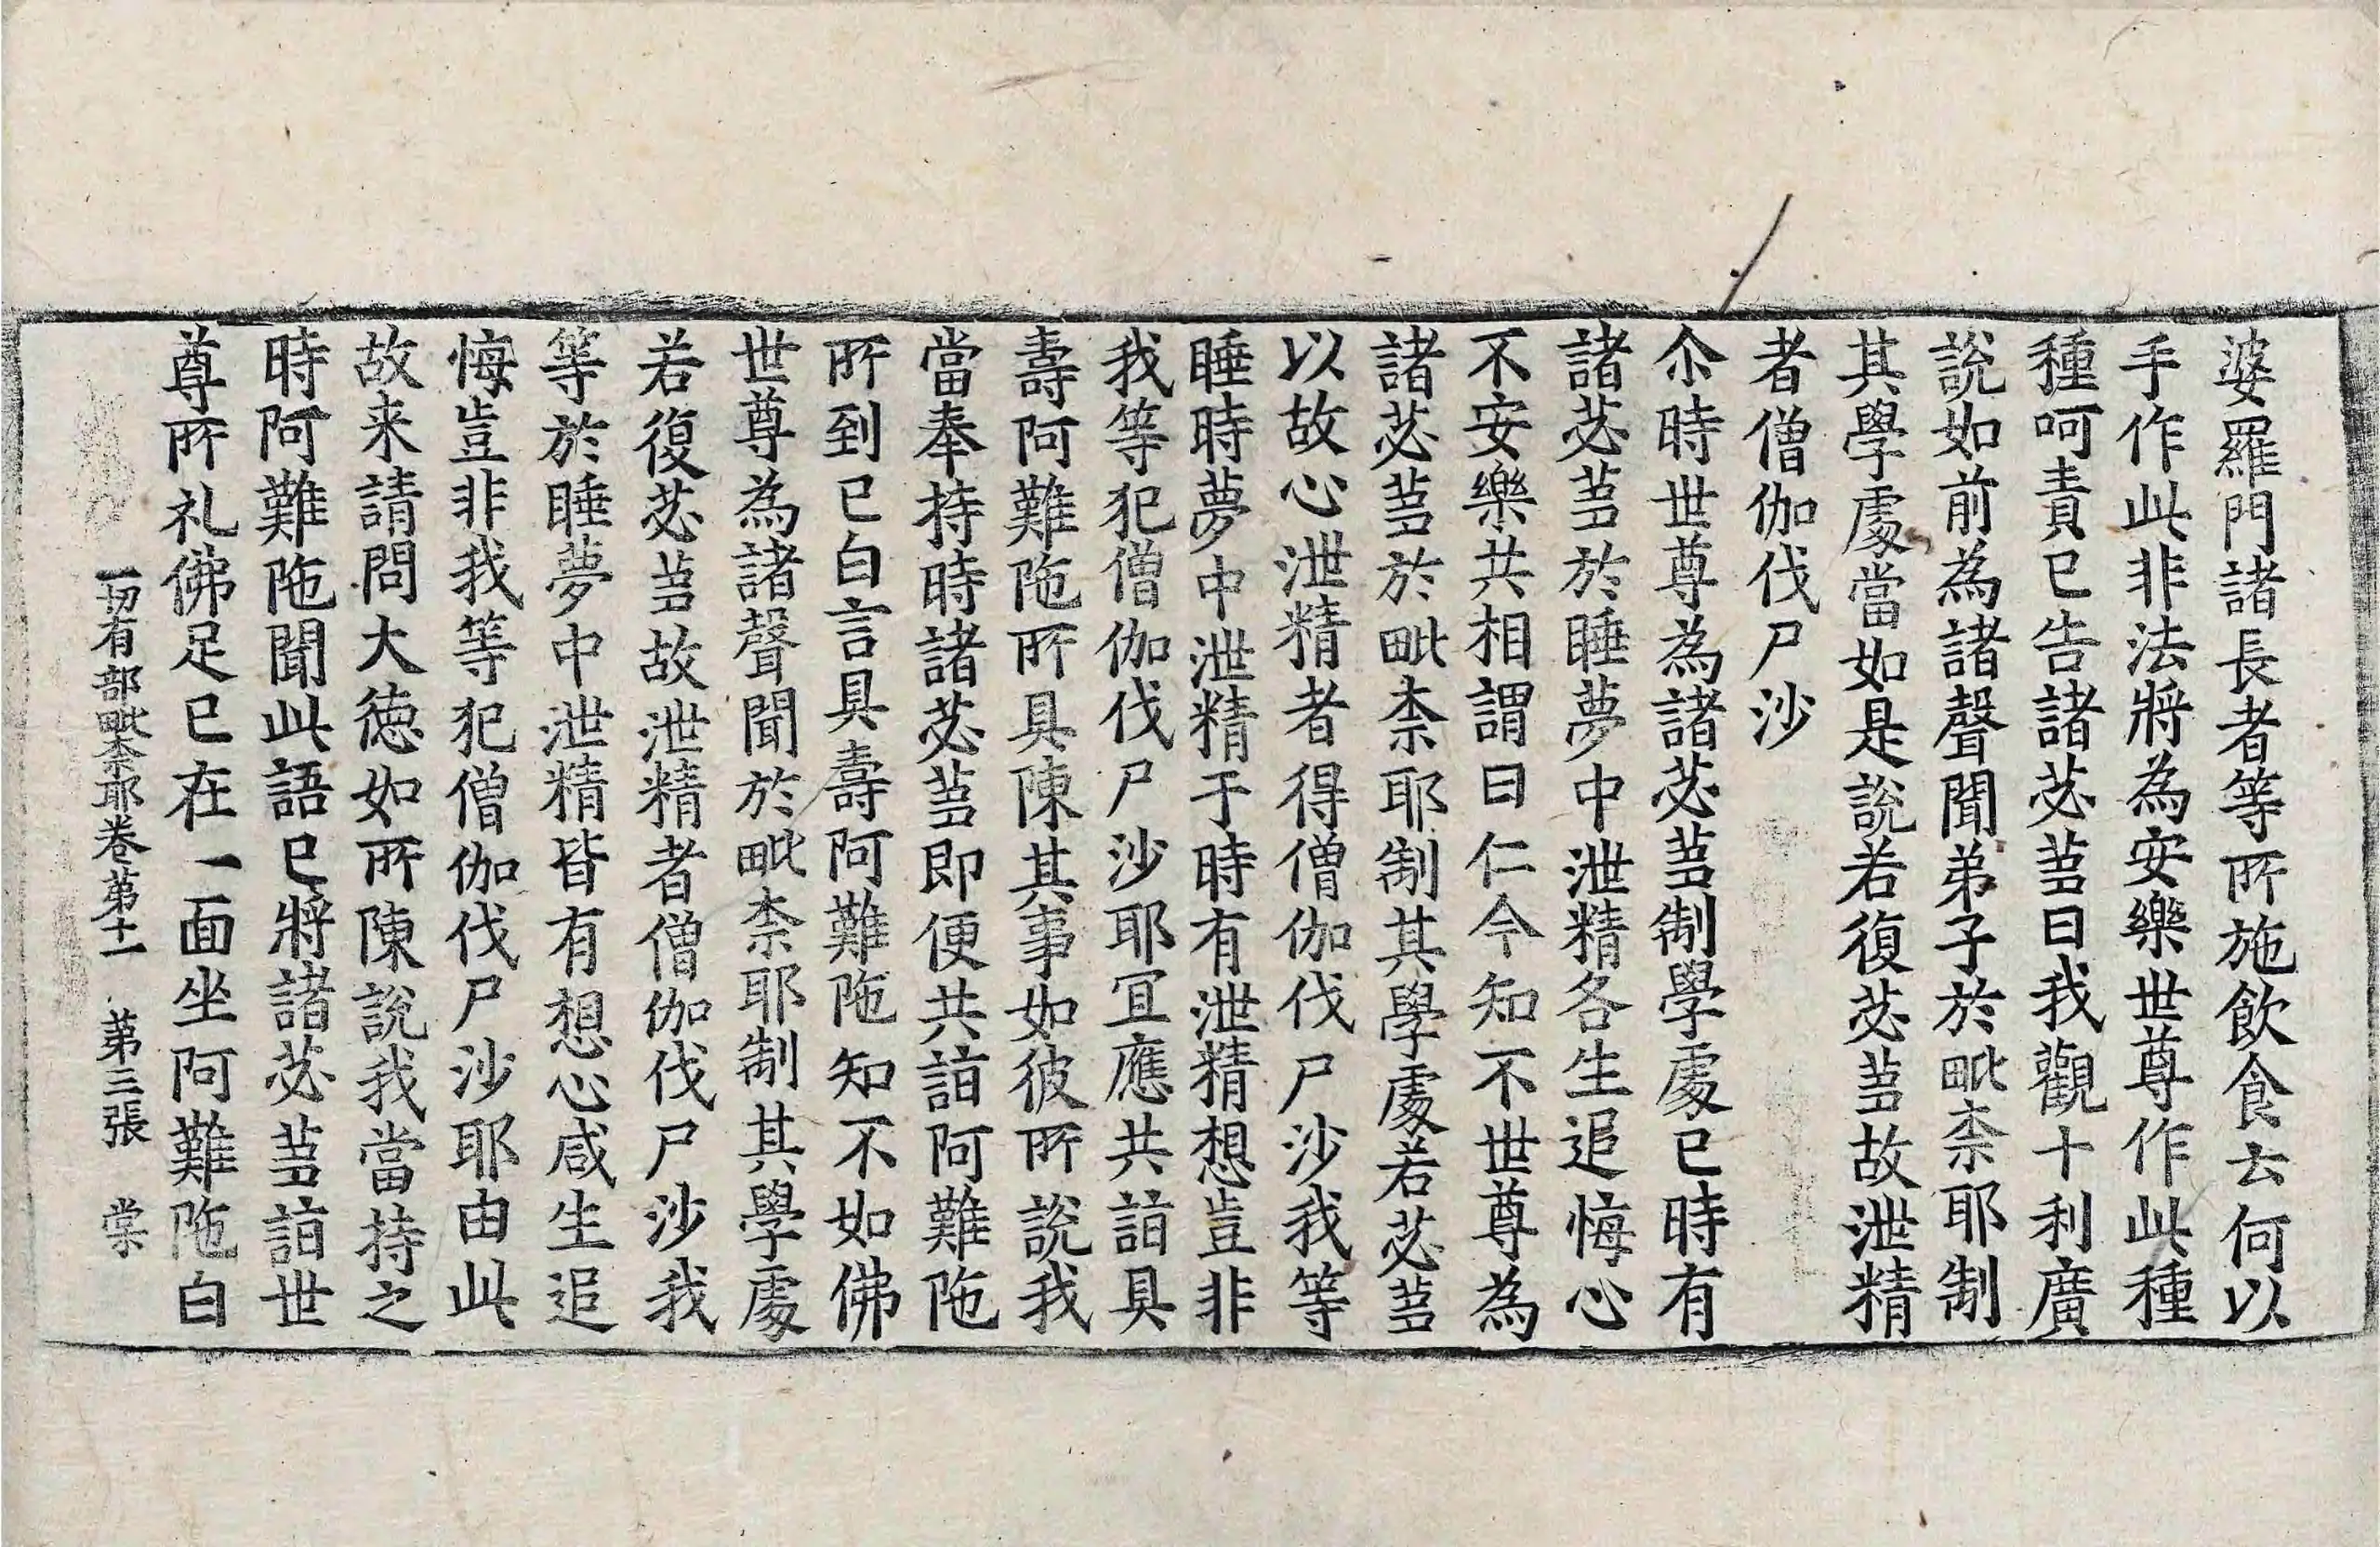 婆羅門諸長者等所施飲食云何以
手作此非法將為安樂世尊作此種
種呵責已告諸苾芻曰我觀十利廣
說如前為諸聲聞弟子於毗柰耶制
其學處當如是說若復苾芻故泄精
者僧伽伐尸沙
尒時世尊為諸苾芻制學處已時有
諸苾芻於睡夢中泄精各生追悔心
不安樂共相謂曰仁今知不世尊為
諸苾芻於毗柰耶制其學處若苾芻
以故心泄精者得僧伽伐尸沙我等
睡時夢中泄精于時有泄精想豈非
我等犯僧伽伐尸沙耶宜應共詣具
壽阿難陁所具陳其事如彼所說我
當奉持時諸苾芻即便共詣阿難陁
所到已白言具壽阿難陁知不如佛
世尊為諸聲聞於毗柰耶制其學處
若復苾芻故泄精者僧伽伐尸沙我
等於睡夢中泄精皆有想心咸生追
悔豈非我等犯僧伽伐尸沙耶由此
故来請問大德如所陳說我當持之
時阿難陁聞此語已將諸苾芻詣世
尊所礼佛足已在一面坐阿難陁白
一切有部毗柰耶卷第十一 第三張 棠